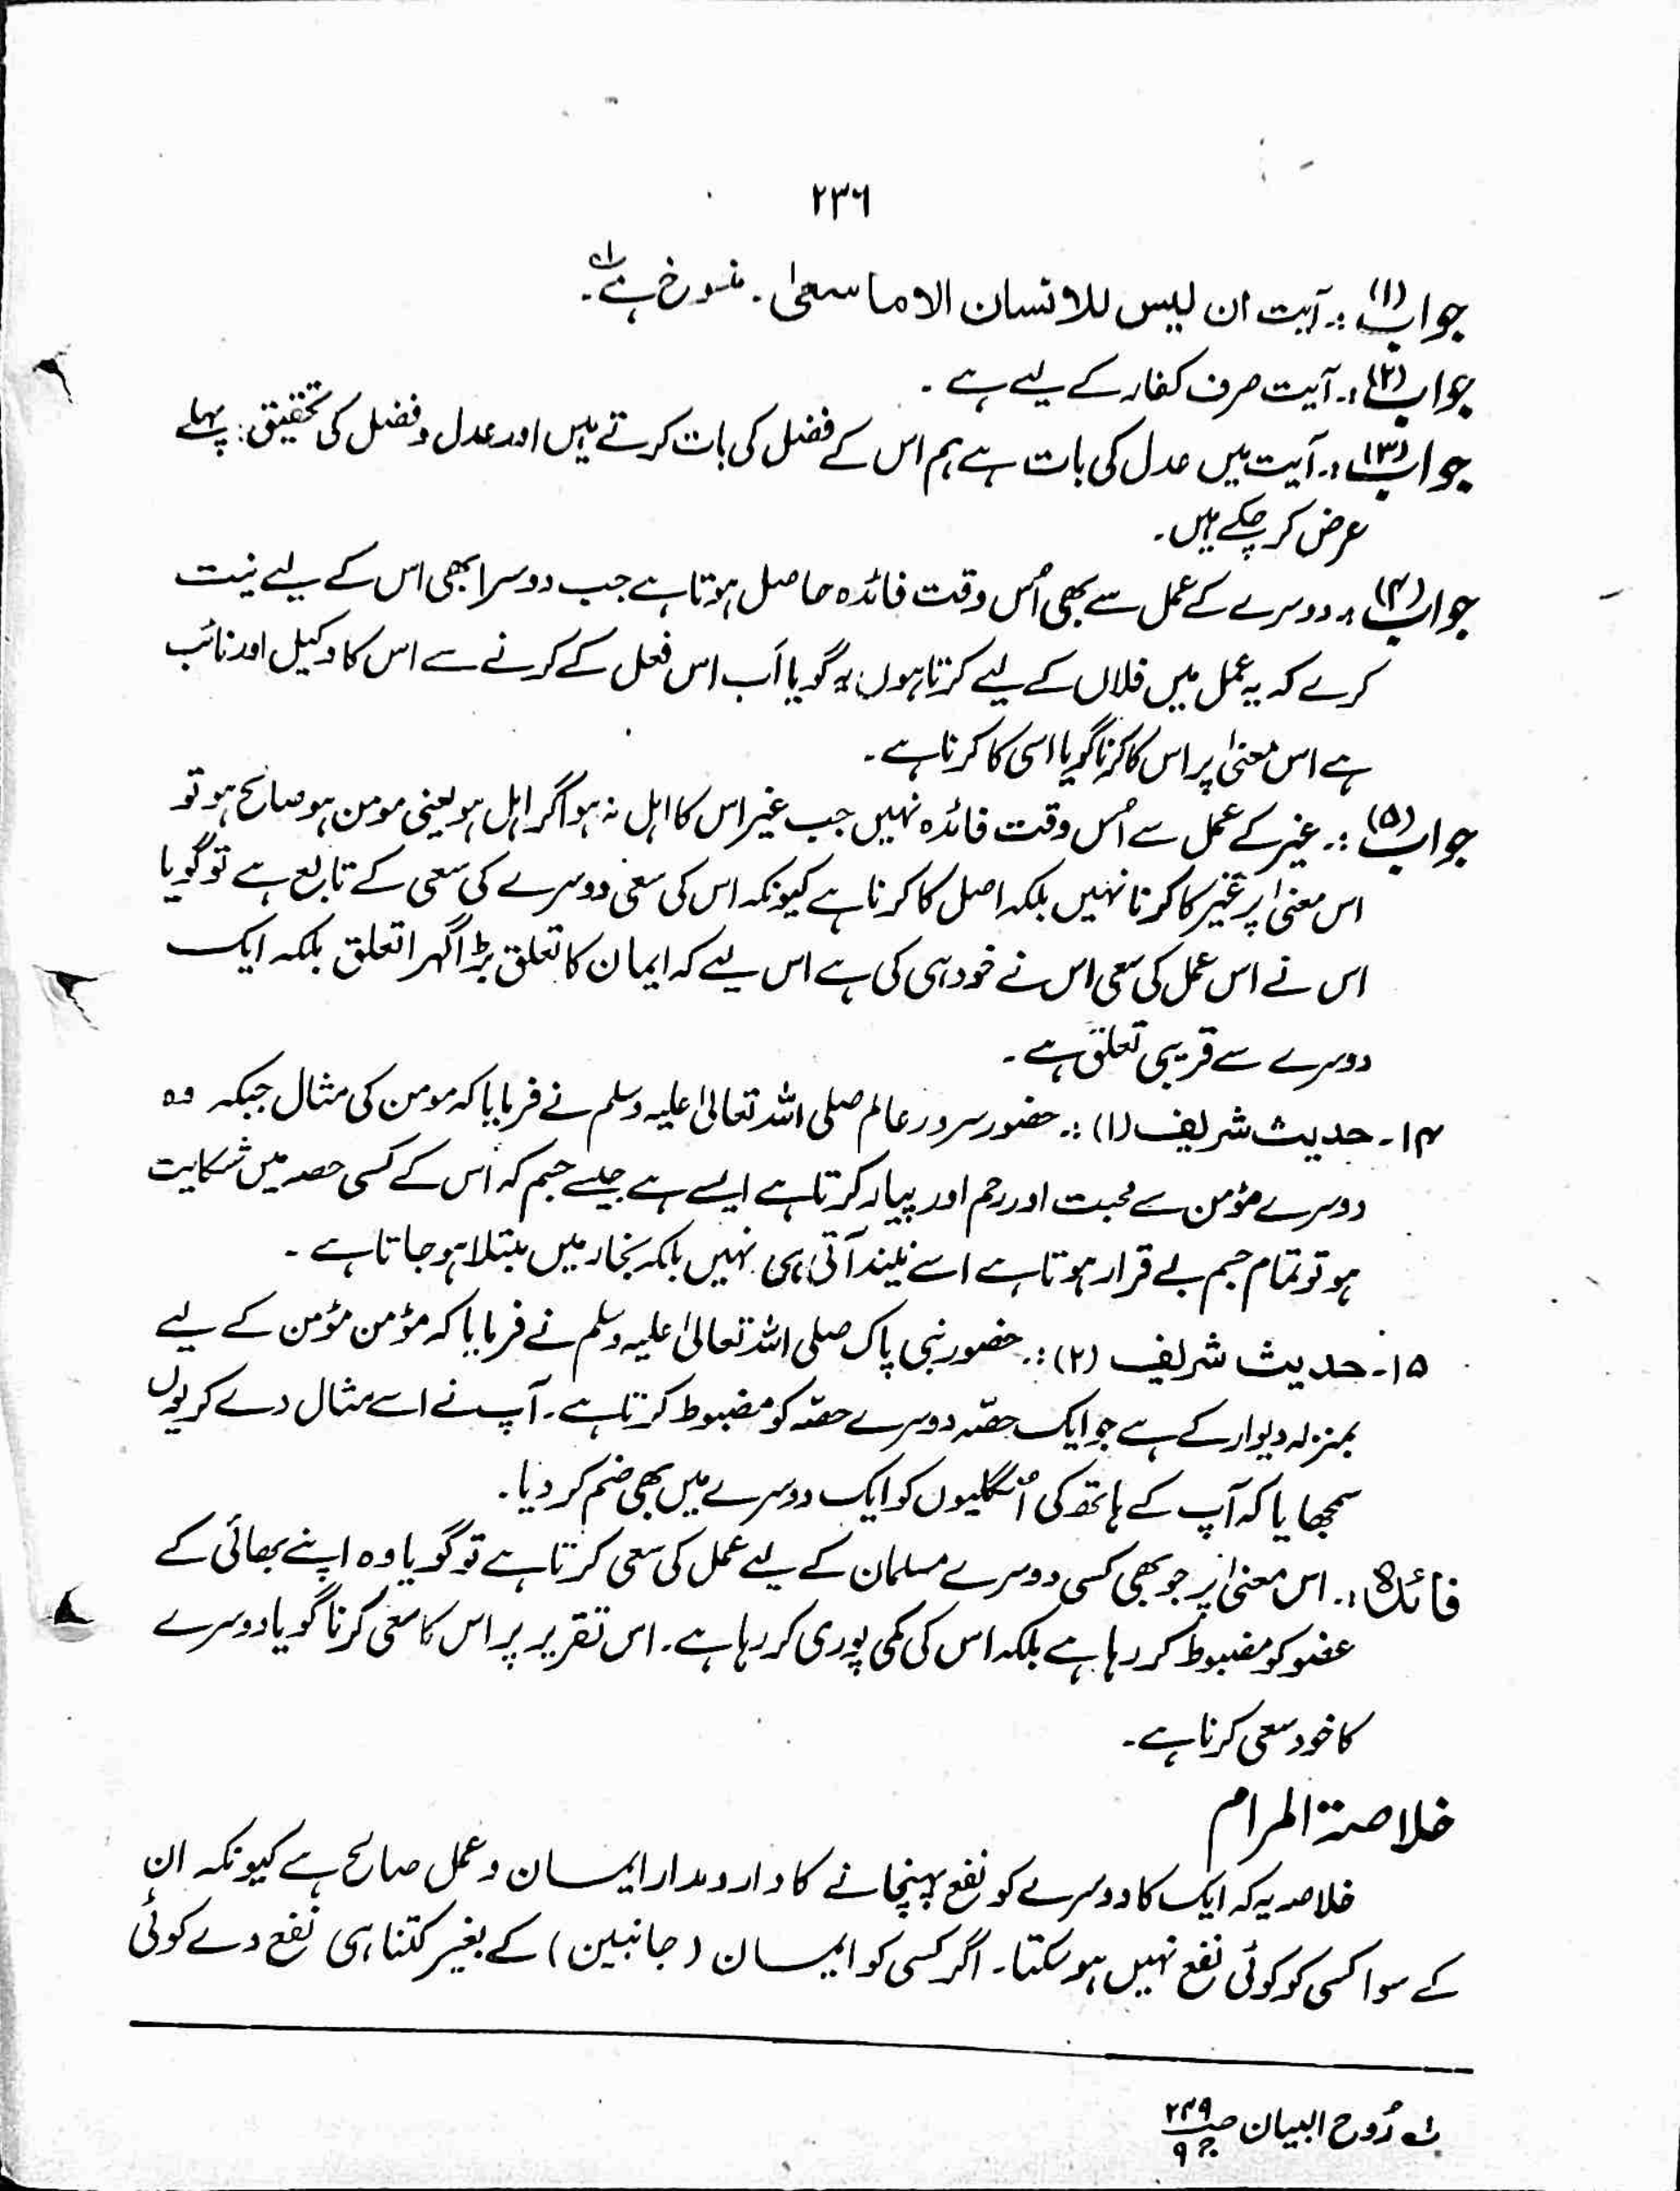 ۲۳۶
جواب (۱) :۔ آیت ان لیس للانسان الا ما سعیٰ ۔ منسوخ ہے۔ لہ
جواب (۲) :۔ آیت صرف کفار کے لیے ہے ۔
جواب (۳) :۔ آیت میں عدل کی بات ہے ہم اس کے فضل کی بات کرتے ہیں اور عدل و فضل کی تحقیق : پہلے
عرض کر چکے ہیں۔
جواب (۴) :۔ دوسرے کے عمل سے بھی اُس وقت فائدہ حاصل ہوتا ہے جب دوسرا بھی اس کے لیے نیت
کرے کہ یہ عمل میں فلاں کے لیے کرتا ہوں، گویا اَب اس فعل کے کرنے سے اس کا وکیل اور نائب
ہے اس معنیٰ پر اس کا کرنا گویا اسی کا کرنا ہے ۔
جواب (۵) :۔ غیر کے عمل سے اُس وقت فائدہ نہیں جب غیر اس کا اہل نہ ہو اگر اہل ہو یعنی مومن ہو صالح ہو تو
اس معنیٰ پر غیر کا کرنا نہیں بلکہ اصل کا کرنا ہے کیونکہ اس کی سعی دوسرے کی سعی کے تابع ہے تو گویا
اس نے اس عمل کی سعی اس نے خود ہی کی ہے اس لیے کہ ایمان کا تعلق بڑا گہرا تعلق بلکہ ایک
دوسرے سے قریبی تعلق ہے ۔
۱۴۔ حدیث شریف (۱) :۔ حضور سرور عالم صلی اللہ تعالیٰ علیہ وسلم نے فرمایا کہ مومن کی مثال جبکہ وہ
دوسرے مؤمن سے محبت اور رحم اور پیار کرتا ہے ایسے ہے جیسے جسم کہ اُس کے کسی حصہ میں شکایت
ہو تو تمام جسم بے قرار ہوتا ہے اسے نیند آتی ہی نہیں بلکہ بخار میں مبتلا ہو جاتا ہے ۔
۱۵۔ حدیث شریف (۲) :۔ حضور نبی پاک صلی اللہ تعالیٰ علیہ وسلم نے فرمایا کہ مؤمن مؤمن کے لیے
بمنزلہ دیوار کے ہے جو ایک حصّہ دوسرے حصّہ کو مضبوط کرتا ہے ۔ آپ نے اسے مثال دے کر یوں
سمجھایا کہ آپ کے ہاتھ کی اُنگلیوں کو ایک دوسرے میں بھی ضم کر دیا ۔
فائدہ :۔ اس معنیٰ پر جو بھی کسی دوسرے مسلمان کے لیے عمل کی سعی کرتا ہے تو گویا وہ اپنے بھائی کے
عضو کو مضبوط کر رہا ہے بلکہ اس کی کمی پوری کر رہا ہے ۔ اس تقریر پر اس کا سعی کرنا گویا دوسرے
کا خود سعی کرنا ہے ۔
خلاصۃ المرام
خلاصہ یہ کہ ایک کا دوسرے کو نفع پہنچانے کا دارومدار ایمان و عمل صالح ہے کیونکہ ان
کے سوا کسی کو کوئی نفع نہیں ہو سکتا ۔ اگر کسی کو ایمان (جانبین) کے بغیر کتنا ہی نفع دے کوئی
لہ رُوح البیان ص ۲۴۹ ج ۹